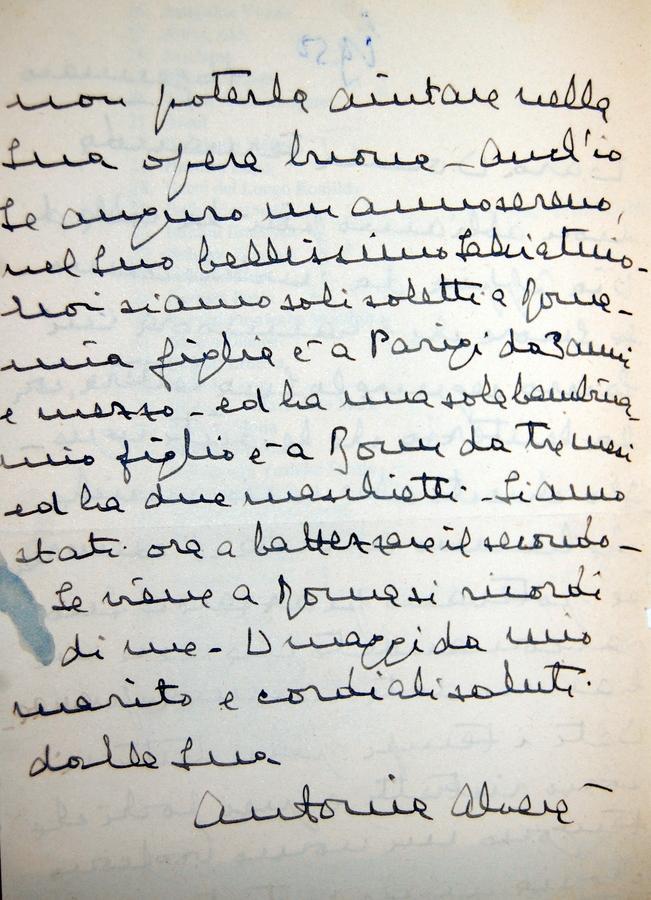 non poterla aiutare nella
Sua opera buona - Anch'io
Le auguro un anno sereno,
nel Suo bellissimo
noi siamo soli soletti a Roma -
mia figlia è a Parigi da 3 anni
e mezzo - ed ha una sola bambina -
mio figlio è a da tre mesi
ed ha due maschietti - Siamo
stati ora a battezzare il secondo -
Se viene a Roma si ricordi
di me - Omaggi da mio
marito e cordiali saluti
dalla Sua
Antonia